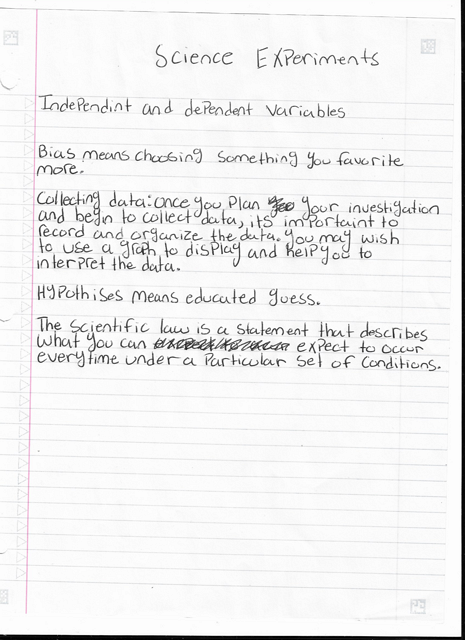 Science Experiments
Independint and dependent variables
Bias means choosing something you favorite
more.
Collecting data: once you plan your investigation
and begin to collect data, its importaint to
record and organize the data. you may wish
to use a graph to display and help you to
interpret the data.
Hypothises means educated guess.
The scientific law is a statement that describes
what you can expect to occur
everytime under a particular set of conditions.